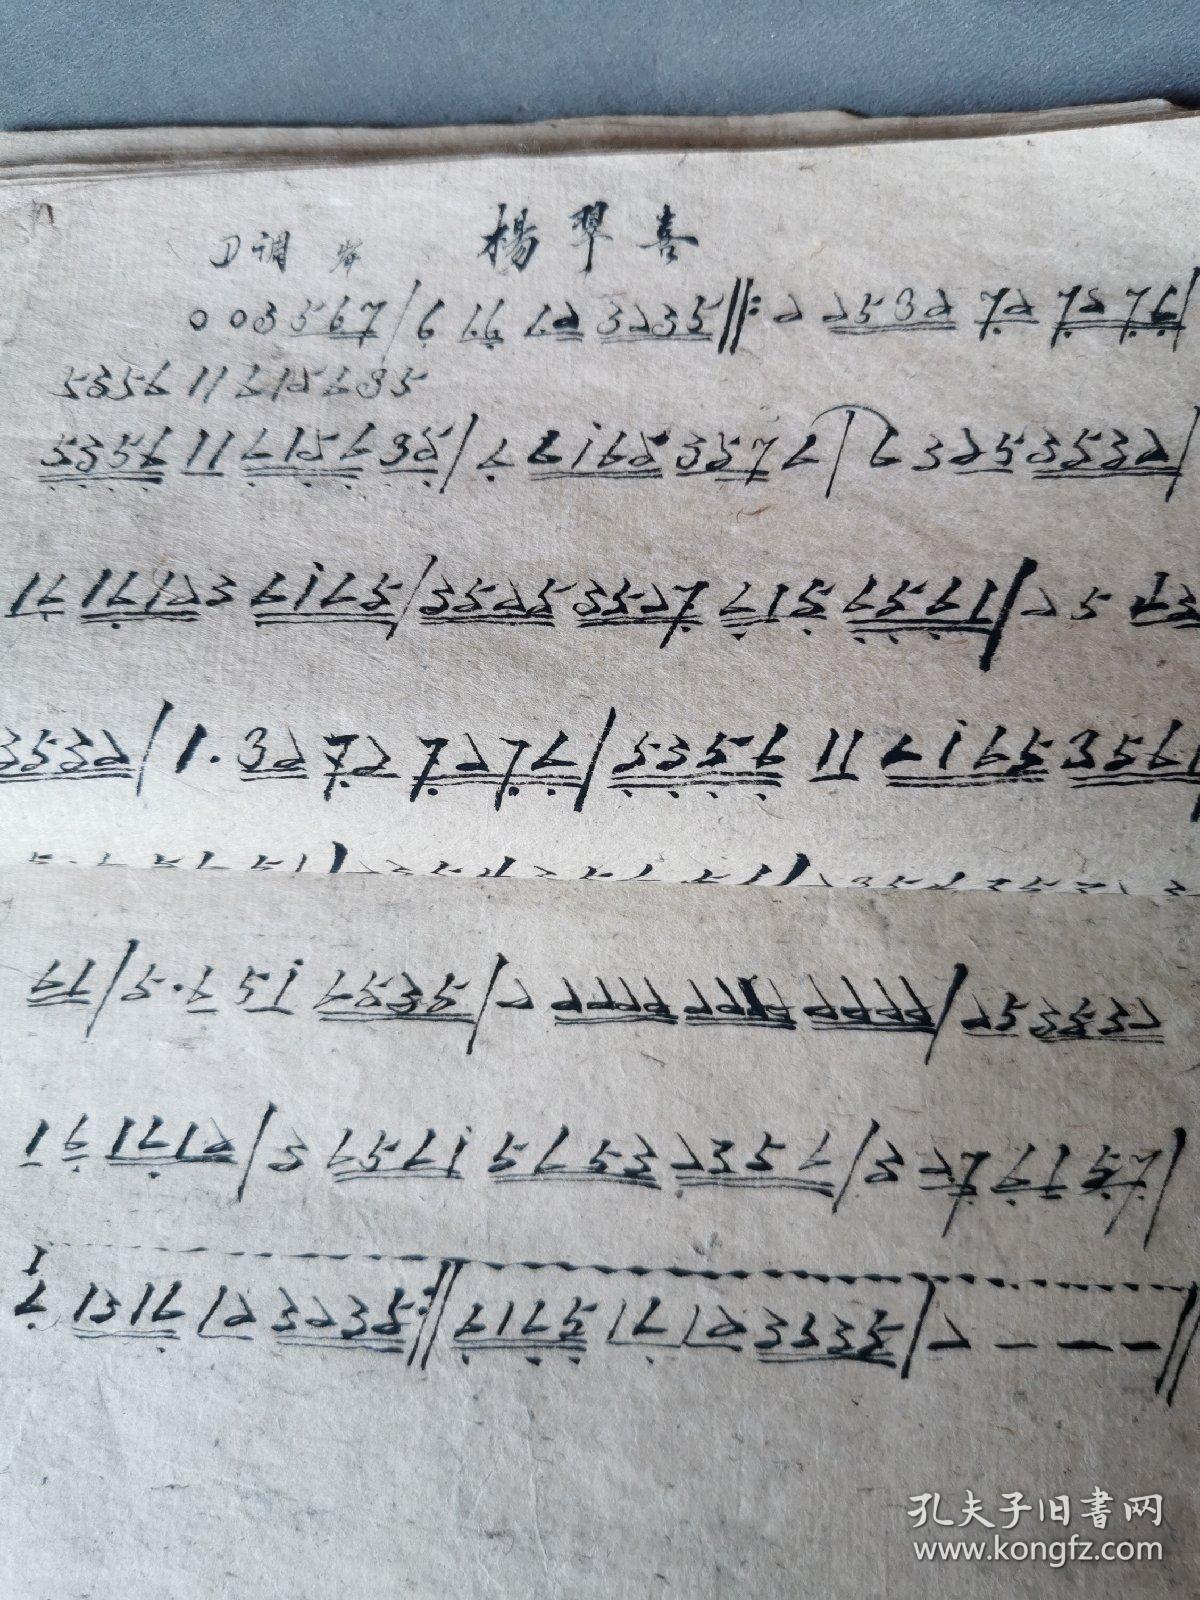 D调 楊翠喜
0 0 3 5 6 7 / 6 1 6 1 2 3 2 3 5 ‖: 2 2 5 3 2 7 2 7 2 7 6 /
5 3 5 6 1 1 6 1 5 6 3 5
5 3 5 6 1 1 6 1 5 6 3 5 / 6 6 i 6 5 3 5 7 6 / 6 3 2 5 3 5 3 2 /
1 6 1 6 1 2 3 6 i 6 5 / 3 5 2 5 3 5 2 7 6 1 5 6 5 6 1 / 2 5
3 5 3 2 / 1 · 3 2 7 2 7 2 7 6 / 5 3 5 6 1 1 6 i 6 5 3 5 6 1
6 1 / 5 · 6 5 i 6 5 3 5 / 2 2 2 2 2 2 2 2 2 2 2 2 2 / 2 5 3 5 3 2
1 6 1 6 1 2 / 3 6 5 6 i 5 6 5 3 2 3 5 6 / 3 2 7 6 1 5 7 /
6 1 3 1 6 1 2 3 2 3 5 :‖ 6 1 6 5 1 6 1 2 3 3 3 5 / 2 - - - ‖
孔夫子旧書网
www.kongfz.com